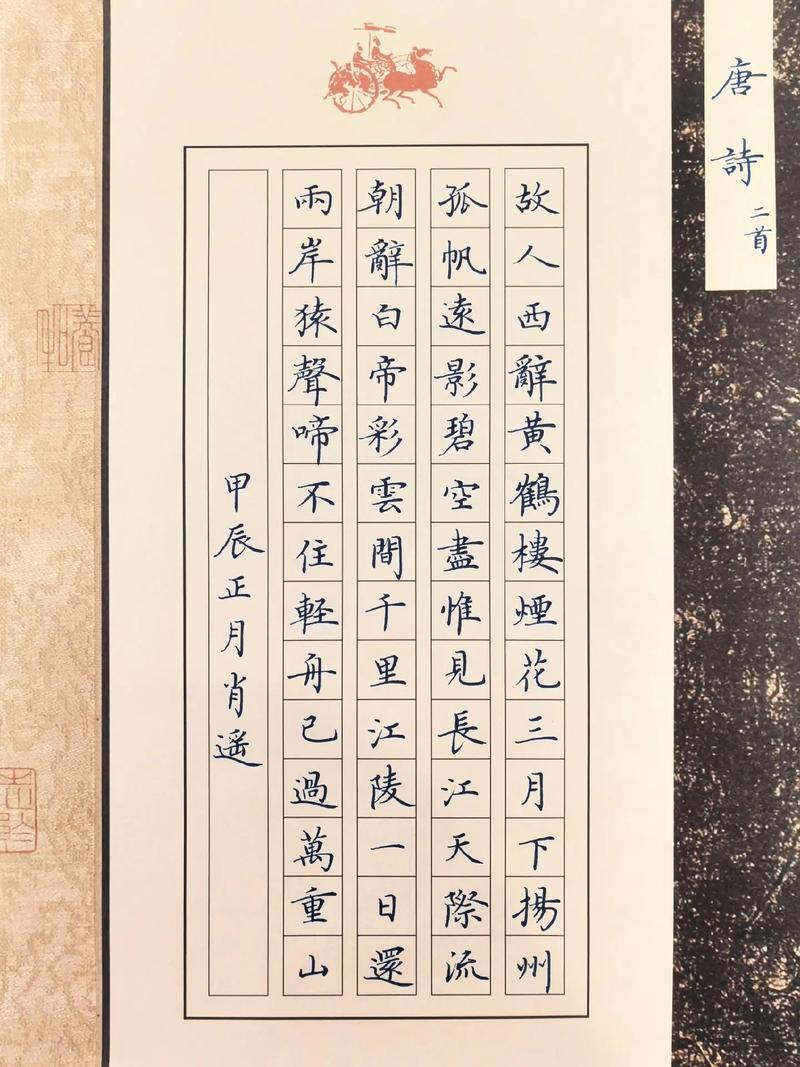 唐詩二首
故人西辭黃鶴樓煙花三月下揚州
孤帆遠影碧空盡惟見長江天際流
朝辭白帝彩雲間千里江陵一日還
兩岸猿聲啼不住輕舟已過萬重山
甲辰正月肖遥